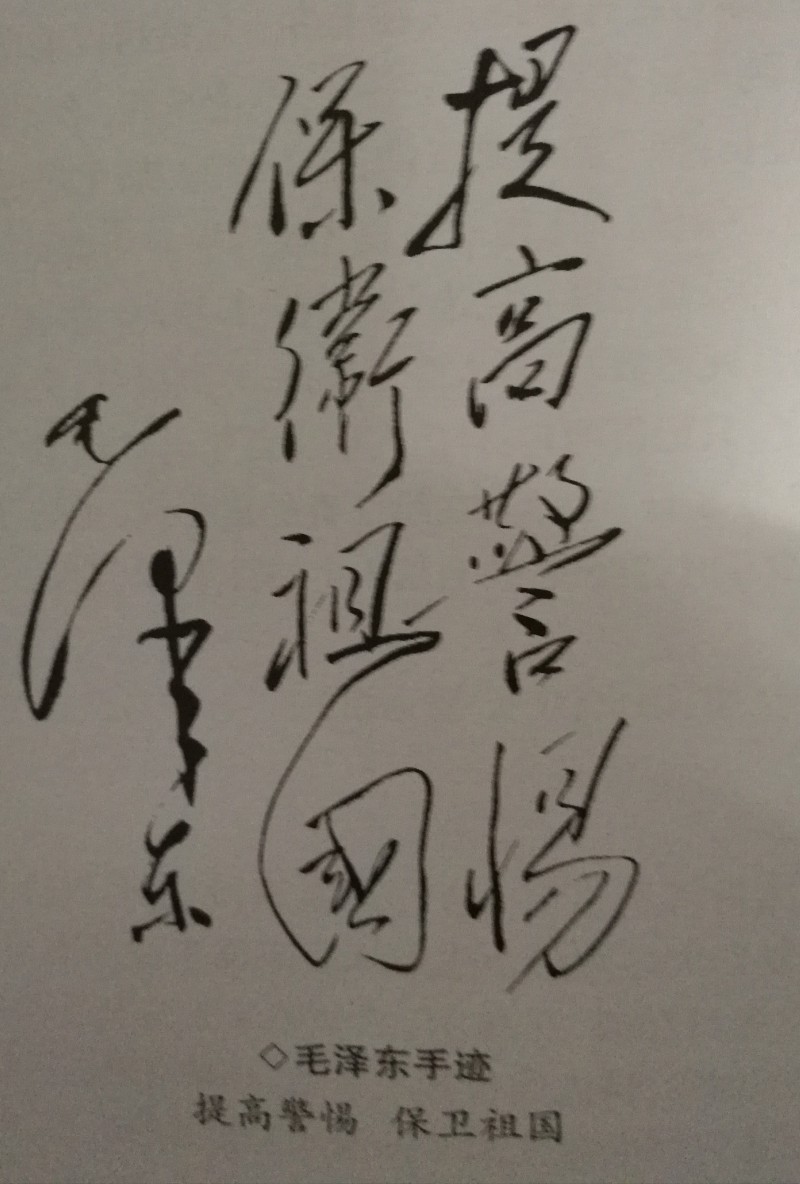 提高警惕
保衛祖國
毛泽东
◇毛泽东手迹
提高警惕 保卫祖国